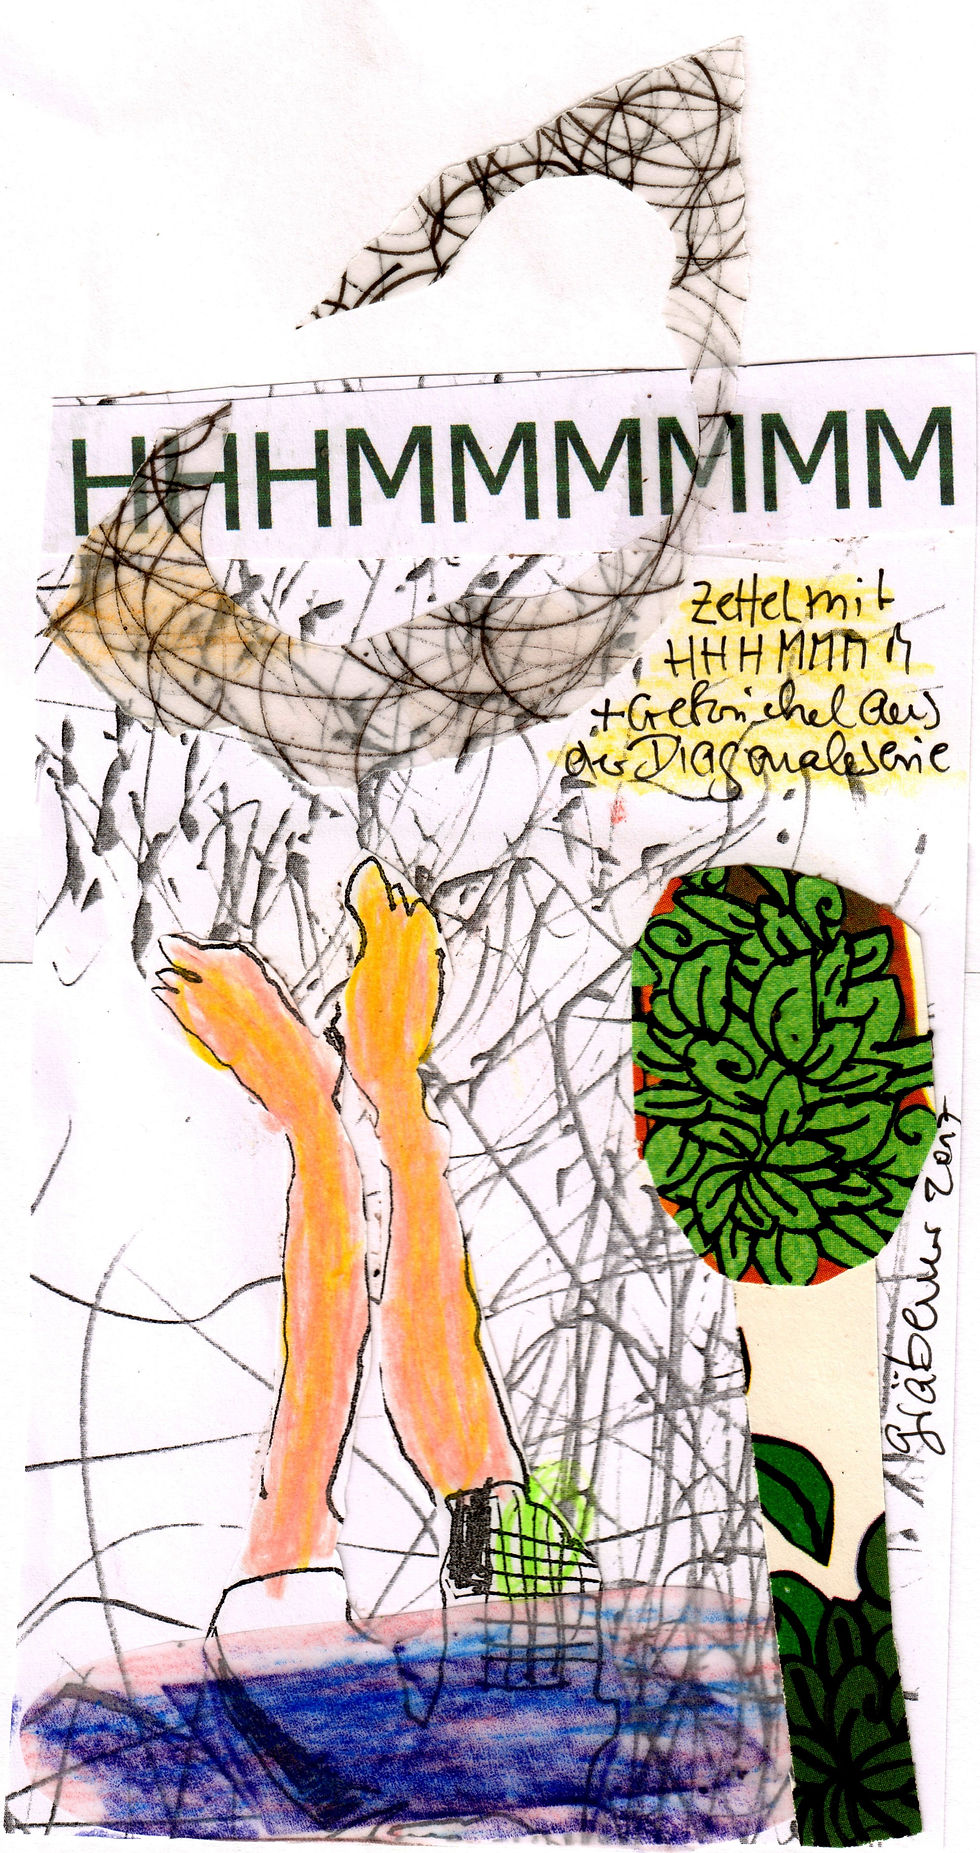 HHHMMMMMM
Zettel mit
HHHMMMM
+ Gekrickel aus
der Diagonaleserie
Gräbener 2017